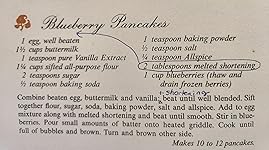 Blueberry Pancakes
1 egg, well beaten
1½ cups buttermilk
1 teaspoon pure Vanilla Extract
1¼ cups sifted all-purpose flour
2 teaspoons sugar
½ teaspoon soda
1 teaspoon baking powder
½ teaspoon salt
¼ teaspoon Allspice
2 tablespoons melted shortening
1 cup blueberries (thaw and
drain frozen berries)
+ shortening
Combine beaten egg, buttermilk and vanilla; beat until well blended. Sift
together flour, sugar, soda, baking powder, salt and Allspice. Add to egg
mixture along with melted shortening and beat until smooth. Stir in blue-
berries. Pour small amounts of batter onto heated griddle. Cook until
full of bubbles and brown. Turn and brown other side.
Makes 10 to 12 pancakes.